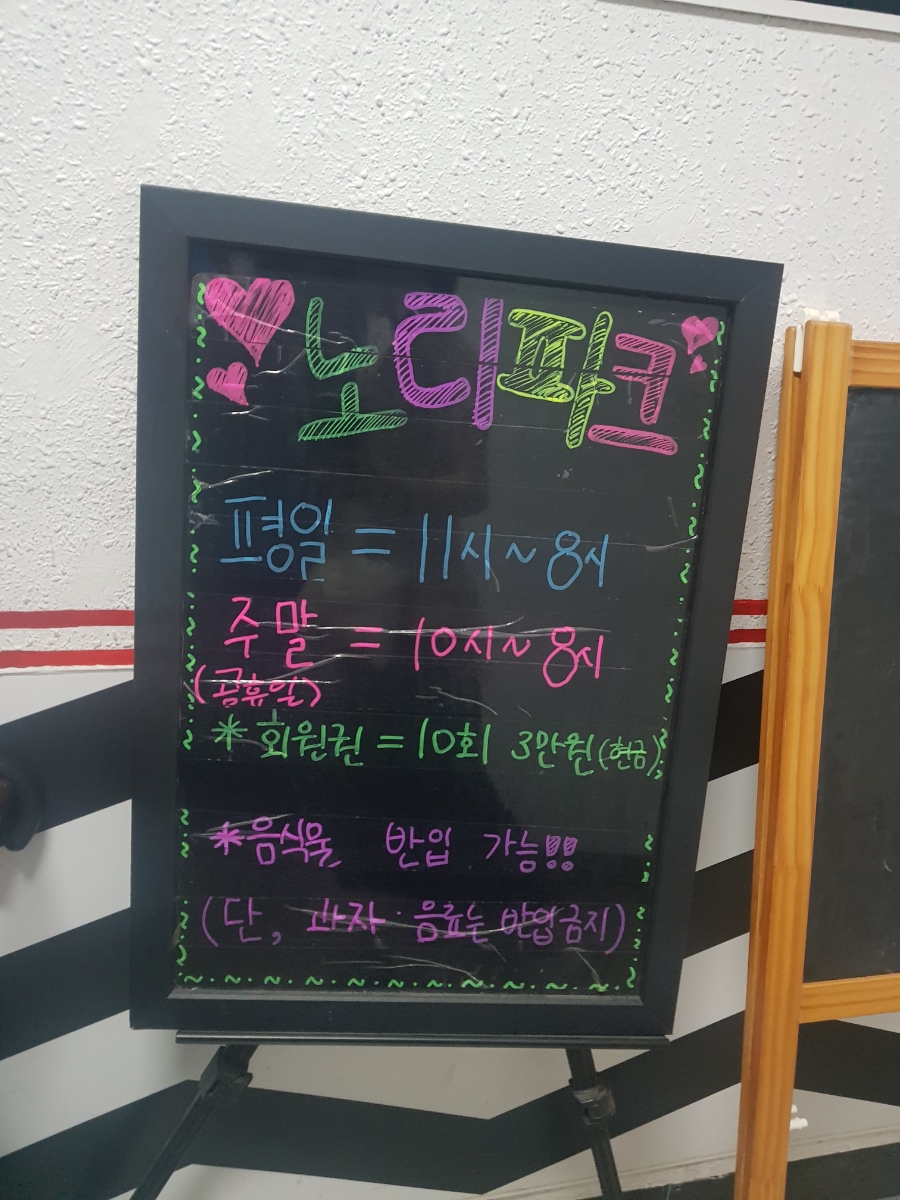 노리파크
평일 = 11시 ~ 8시
주말 = 10시 ~ 8시
(공휴일)
* 회원권 = 10회 3만원 (현금)
* 음식물 반입 가능!!
(단, 과자 · 음료는 반입금지)